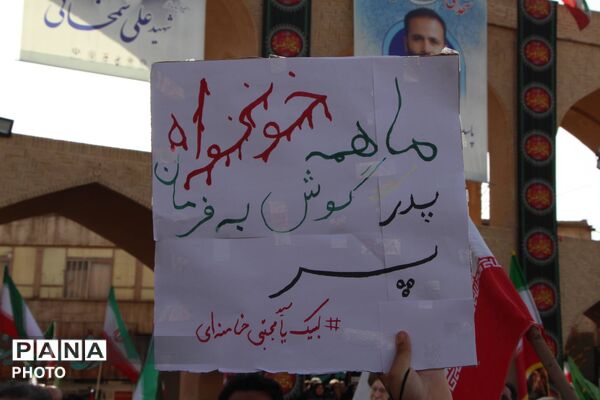 شهید علی شمخانی
ما همه خونخواه
پدر گوش به فرمان
پسر
#لبیک یا سید مجتبی خامنه ای
PANA
PHOTO